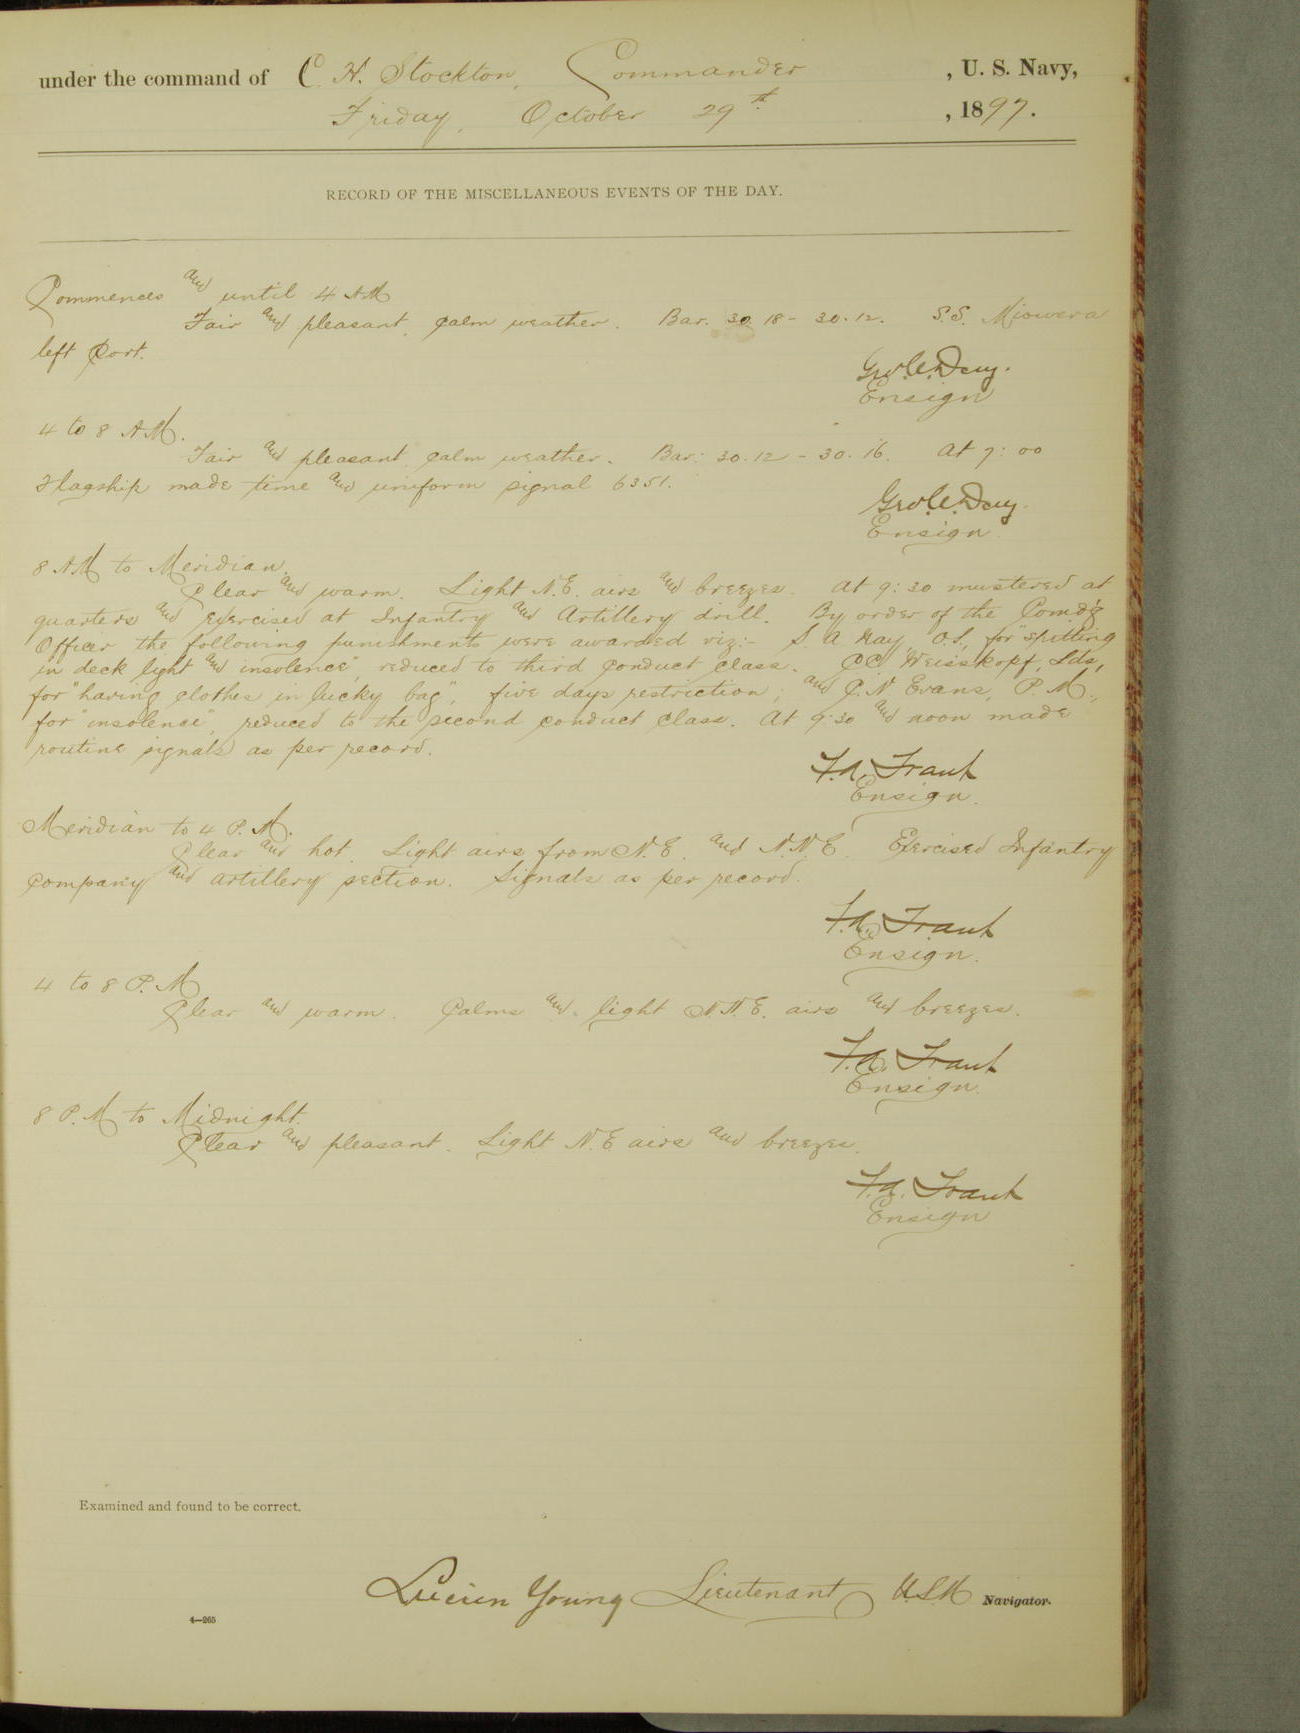 under the command of C. H. Stockton, Commander, U. S. Navy,
Friday, October 29th, 1897.
RECORD OF THE MISCELLANEOUS EVENTS OF THE DAY.
Commences and until 4 AM
Fair and pleasant, calm weather. Bar. 30.18 - 30.12. S.S. Miowera
left Port.
Geo. C. Day.
Ensign
4 to 8 A.M.
Fair and pleasant calm weather. Bar: 30.12 - 30.16. At 7:00
Flagship made time and uniform signal 6351.
Geo. C. Day.
Ensign.
8 AM to Meridian.
Clear and warm. Light N.E. airs and breezes. At 9:30 mustered at
quarters and exercised at Infantry and Artillery drill. By order of the Comd'g
Officer the following punishments were awarded viz:- S. A. Hay, O.S., for "spitting
in deck light and insolence", reduced to third conduct class. C.C. Weisskopf, Lds,
for "having clothes in lucky bag", five days restriction; and C. N. Evans, P. M.,
for "insolence", reduced to the second conduct class. At 9:30 and noon made
routine signals as per record.
F. A. Traut
Ensign.
Meridian to 4 P.M.
Clear and hot. Light airs from N.E. and N.N.E. Exercised Infantry
company and artillery section. Signals as per record.
F. A. Traut
Ensign.
4 to 8 P.M
Clear and warm. Calms and light N.N.E. airs and breezes.
F. A. Traut
Ensign.
8 P.M to Midnight.
Clear and pleasant. Light N.E. airs and breezes.
F. A. Traut
Ensign
Examined and found to be correct.
Lucien Young Lieutenant U.S.N Navigator.
4—265